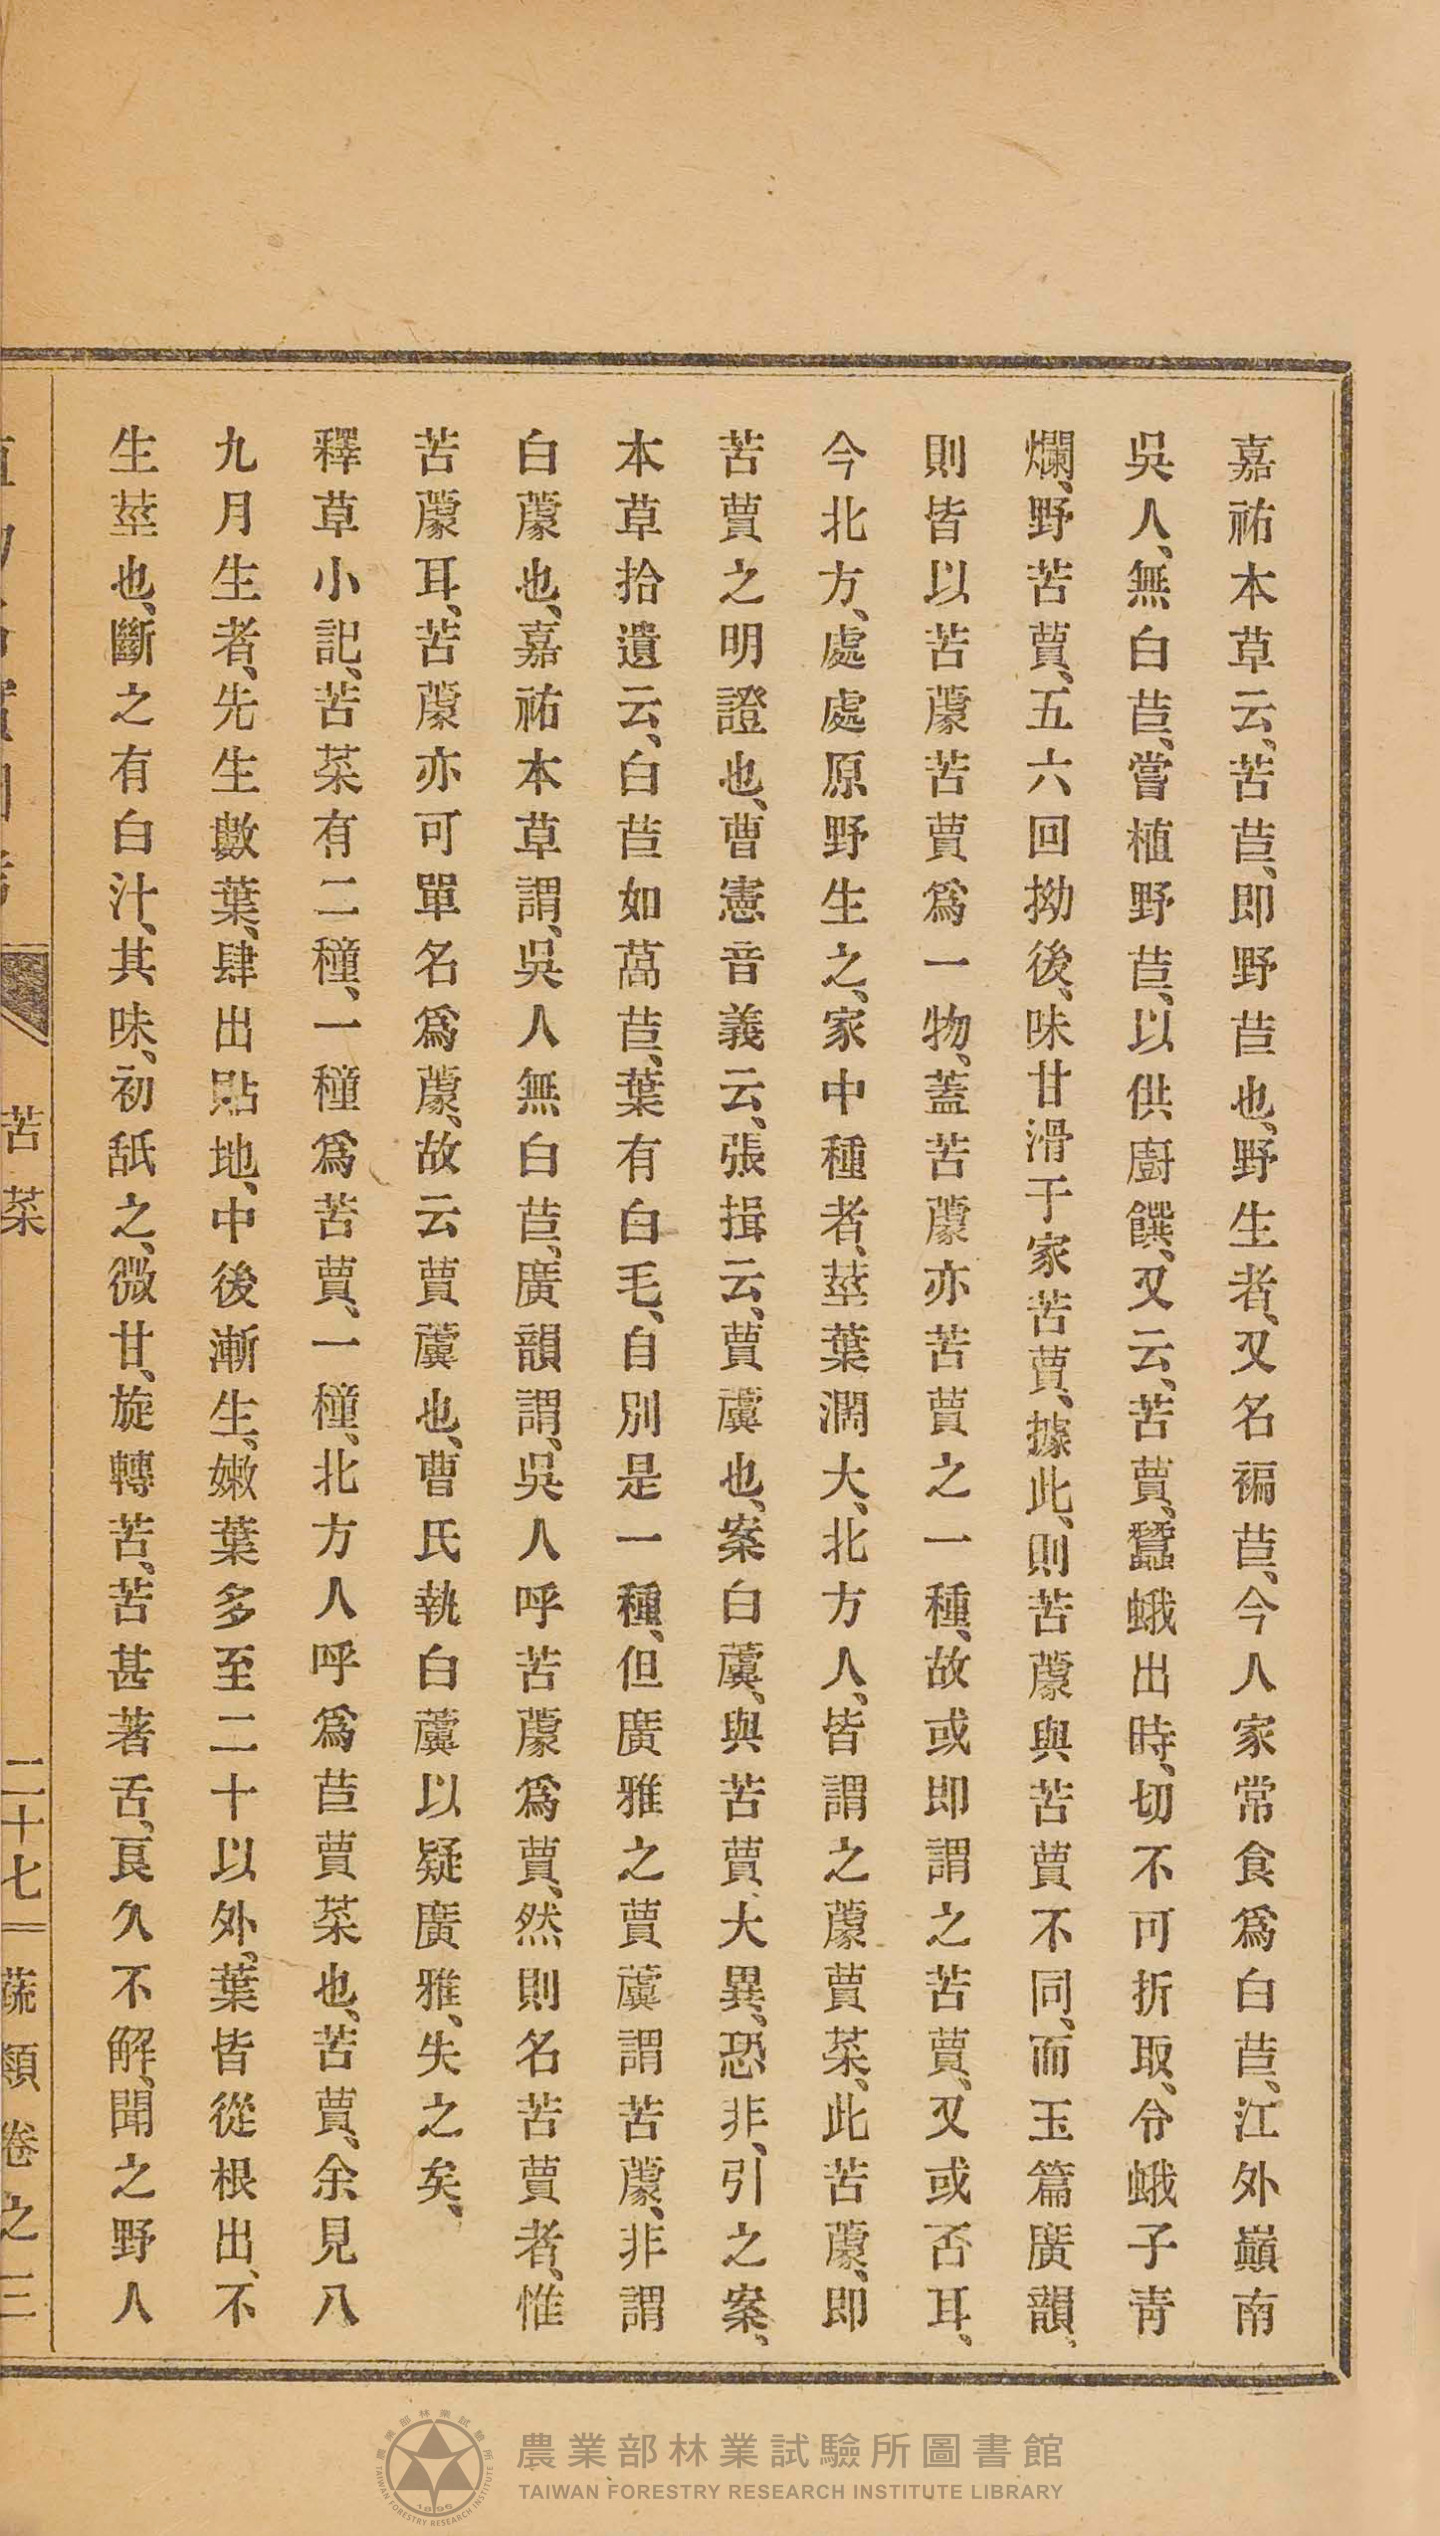 嘉祐本草云、苦苣、即野苣也、野生者、又名褊苣、今人家常食爲白苣、江外嶺南
吳人、無白苣、嘗植野苣、以供廚饌、又云、苦蕒、蠶蛾出時、切不可折取、令蛾子靑
爛、野苦蕒、五六回拗後、味甘滑于家苦蕒、據此、則苦蘪與苦蕒不同、而玉篇廣韻、
則皆以苦蘪苦蕒爲一物、蓋苦蘪亦苦蕒之一種、故或即謂之苦蕒、又或否耳、
今北方、處處原野生之、家中種者、莖葉濶大、北方人、皆謂之蘪蕒菜、此苦蘪、即
苦蕒之明證也、曹憲音義云、張揖云、蕒䕒也、案白䕒、與苦蕒大異、恐非、引之案、
本草拾遺云、白苣如萵苣、葉有白毛、自別是一種、但廣雅之蕒䕒謂苦蘪、非謂
白蘪也、嘉祐本草謂、吳人無白苣、廣韻謂、吳人呼苦蘪爲蕒、然則名苦蕒者、惟
苦蘪耳、苦蘪亦可單名爲蘪、故云蕒䕒也、曹氏執白䕒以疑廣雅、失之矣、
釋草小記、苦菜有二種、一種爲苦蕒、一種、北方人呼爲苣蕒菜也、苦蕒、余見八
九月生者、先生數葉、肆出貼地、中後漸生、嫩葉多至二十以外、葉皆從根出、不
生莖也、斷之有白汁、其味、初舐之、微甘、旋轉苦、苦甚著舌、良久不解、聞之野人
苦菜 二十七 蔬類卷之三
農業部林業試驗所圖書館
TAIWAN FORESTRY RESEARCH INSTITUTE LIBRARY
農業部林業試驗所
TAIWAN FORESTRY RESEARCH INSTITUTE
1895